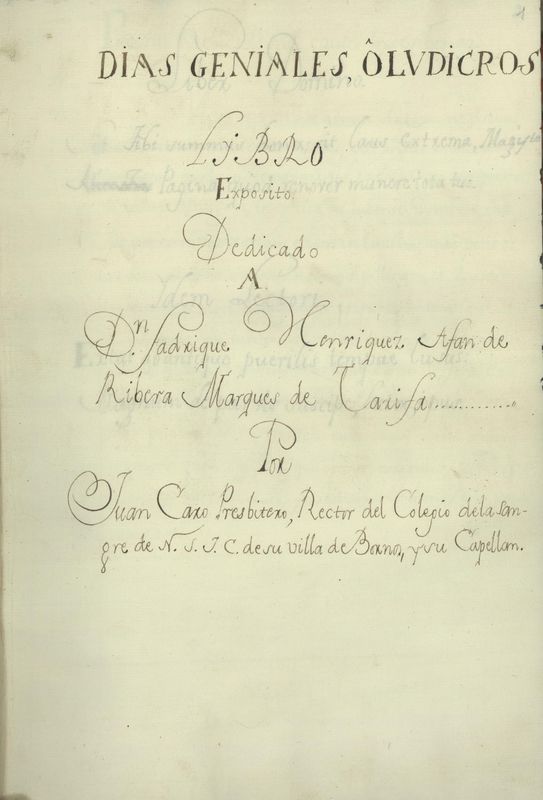 DIAS GENIALES, ÔLVDICROS
LIBRO
Exposito.
Dedicado
A.
D.n fadrique Henriquez Afan de
Ribera Marques de Tarifa.............
Por
Juan Caro Presbitero, Rector del Colegio dela san-
gre de N. S. J. C. de su villa de Bornos, y su Capellan.